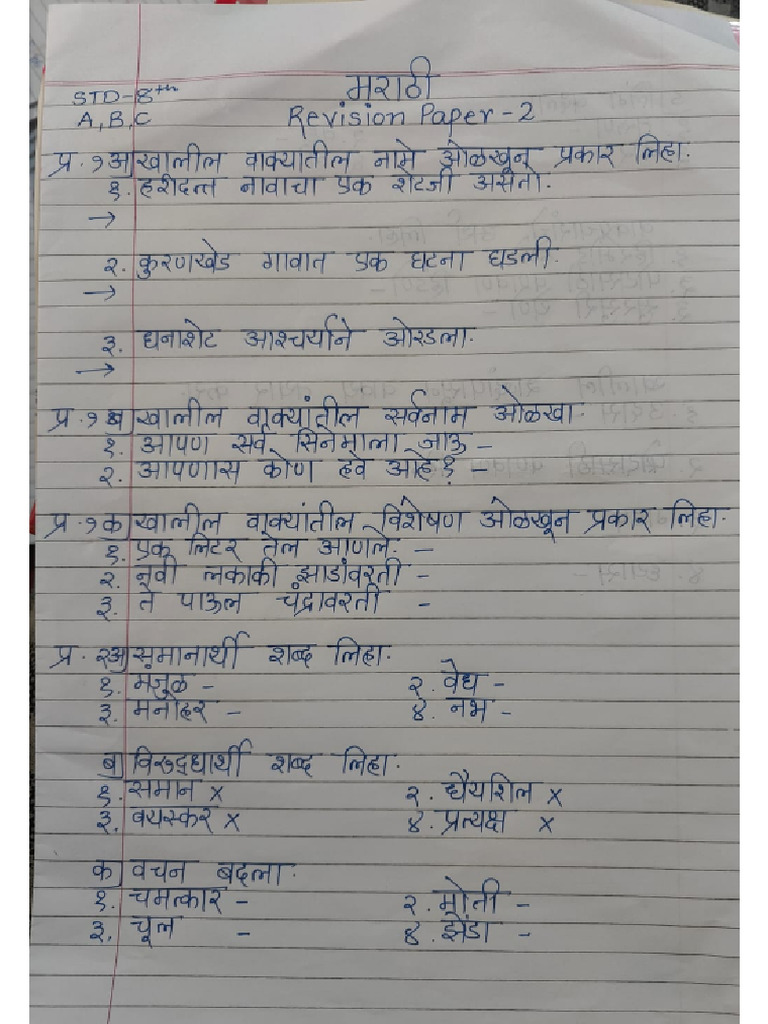 मराठी
STD-8th
A, B, C
Revision Paper - 2
प्र. १ अ) खालील वाक्यातील नामे ओळखून प्रकार लिहा.
१. हरीदत्त नावाचा एक शेटजी असतो.
→
२. कुरणखेड गावात एक घटना घडली.
→
३. धनाशेट आश्चर्याने ओरडला.
→
प्र. १ ब) खालील वाक्यांतील सर्वनाम ओळखा.
१. आपण सर्व सिनेमाला जाऊ -
२. आपणास कोण हवे आहे? -
प्र. १ क) खालील वाक्यांतील विशेषण ओळखून प्रकार लिहा.
१. एक लिटर तेल आणले. -
२. नवी लकाकी झाडांवरती -
३. ते पाऊल चंद्रावरती -
प्र. २ अ) समानार्थी शब्द लिहा.
१. मंजुळ - २. वेध -
३. मनोहर - ४. नभ -
ब) विरुद्धार्थी शब्द लिहा.
१. समान x २. धैर्यशिल x
३. वयस्कर x ४. प्रत्यक्ष x
क) वचन बदला.
१. चमत्कार - २. मोती -
३. चूल - ४. झेंडा -